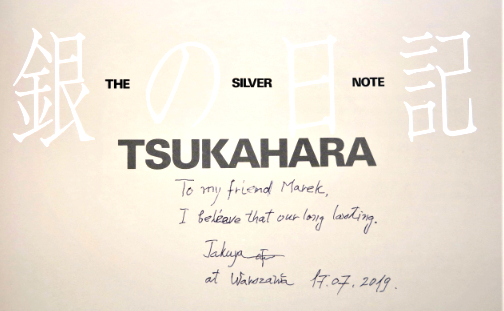 銀の日記
THE SILVER NOTE
TSUKAHARA
To my friend Marek,
I beleave that our long lasting.
Takuya
at Warszawa 17.07.2019.